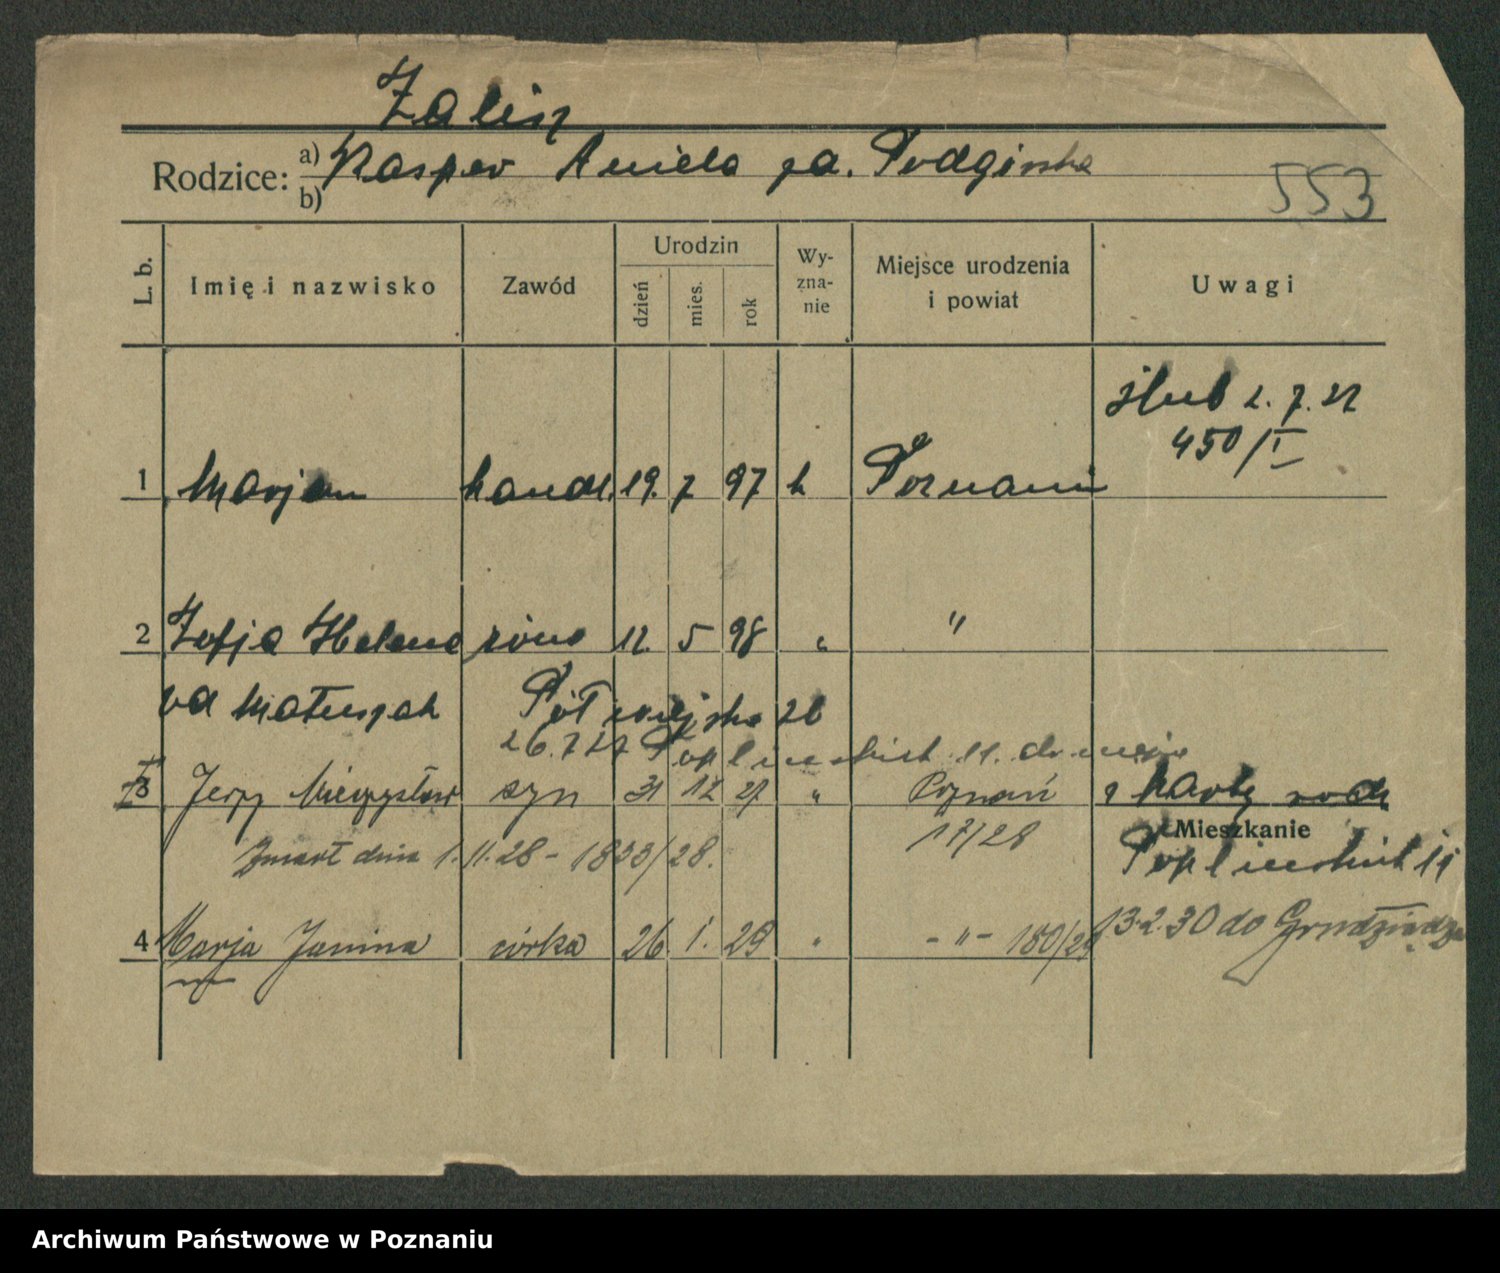 Zalisz
Rodzice: a) Kasper Aniela za. Podgórska
b)
553
L. b. Imię i nazwisko Zawód Urodzin dzień mies. rok Wy-zna-nie Miejsce urodzenia i powiat Uwagi
ślub 2. 7. 27
450/I
1 Marjan handl. 19. 7 97 k Poznaniu
2 Zofja Helena żona 12. 5 98 " "
od Matuszak Półwiejska 26
26.7 27 Poplińskich 11.
3 Jerzy Mieczysław syn 31 12 27 " Poznań z karty rodz
17/28 Mieszkanie
Zmarł dnia 1.11.28 - 1833/28. Poplińskich 11
4 Marja Janina córka 26. 1. 29 " - " - 180/29 13.2.30 do Grudziądza
Archiwum Państwowe w Poznaniu